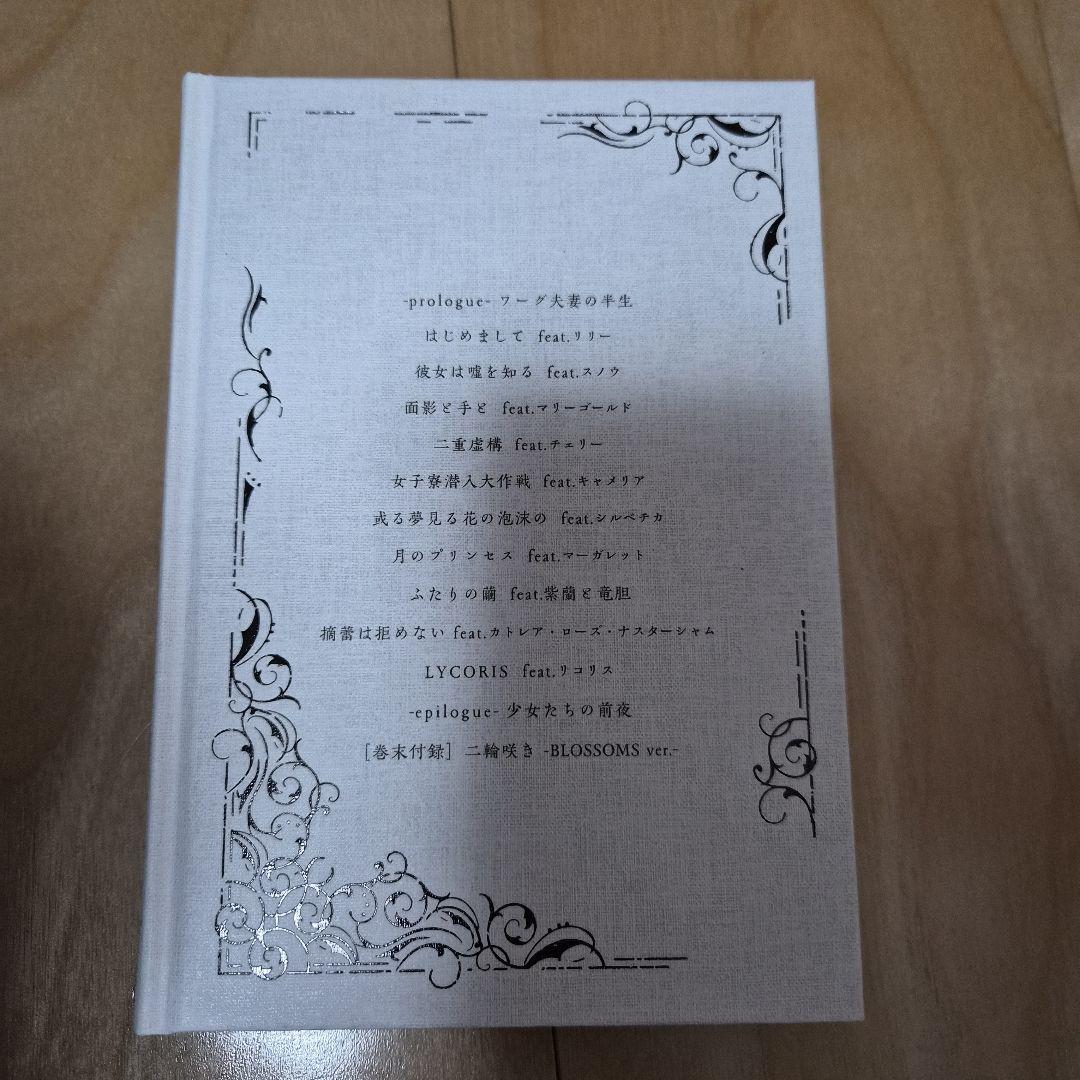 -prologue- ワーグ夫妻の半生
はじめまして feat.リリー
彼女は嘘を知る feat.スノウ
面影と手と feat.マリーゴールド
二重虚構 feat.チェリー
女子寮潜入大作戦 feat.キャメリア
或る夢見る花の泡沫の feat.シルベチカ
月のプリンセス feat.マーガレット
ふたりの繭 feat.紫蘭と竜胆
摘蕾は拒めない feat.カトレア・ローズ・ナスターシャム
LYCORIS feat.リコリス
-epilogue- 少女たちの前夜
[巻末付録] 二輪咲き -BLOSSOMS ver.-